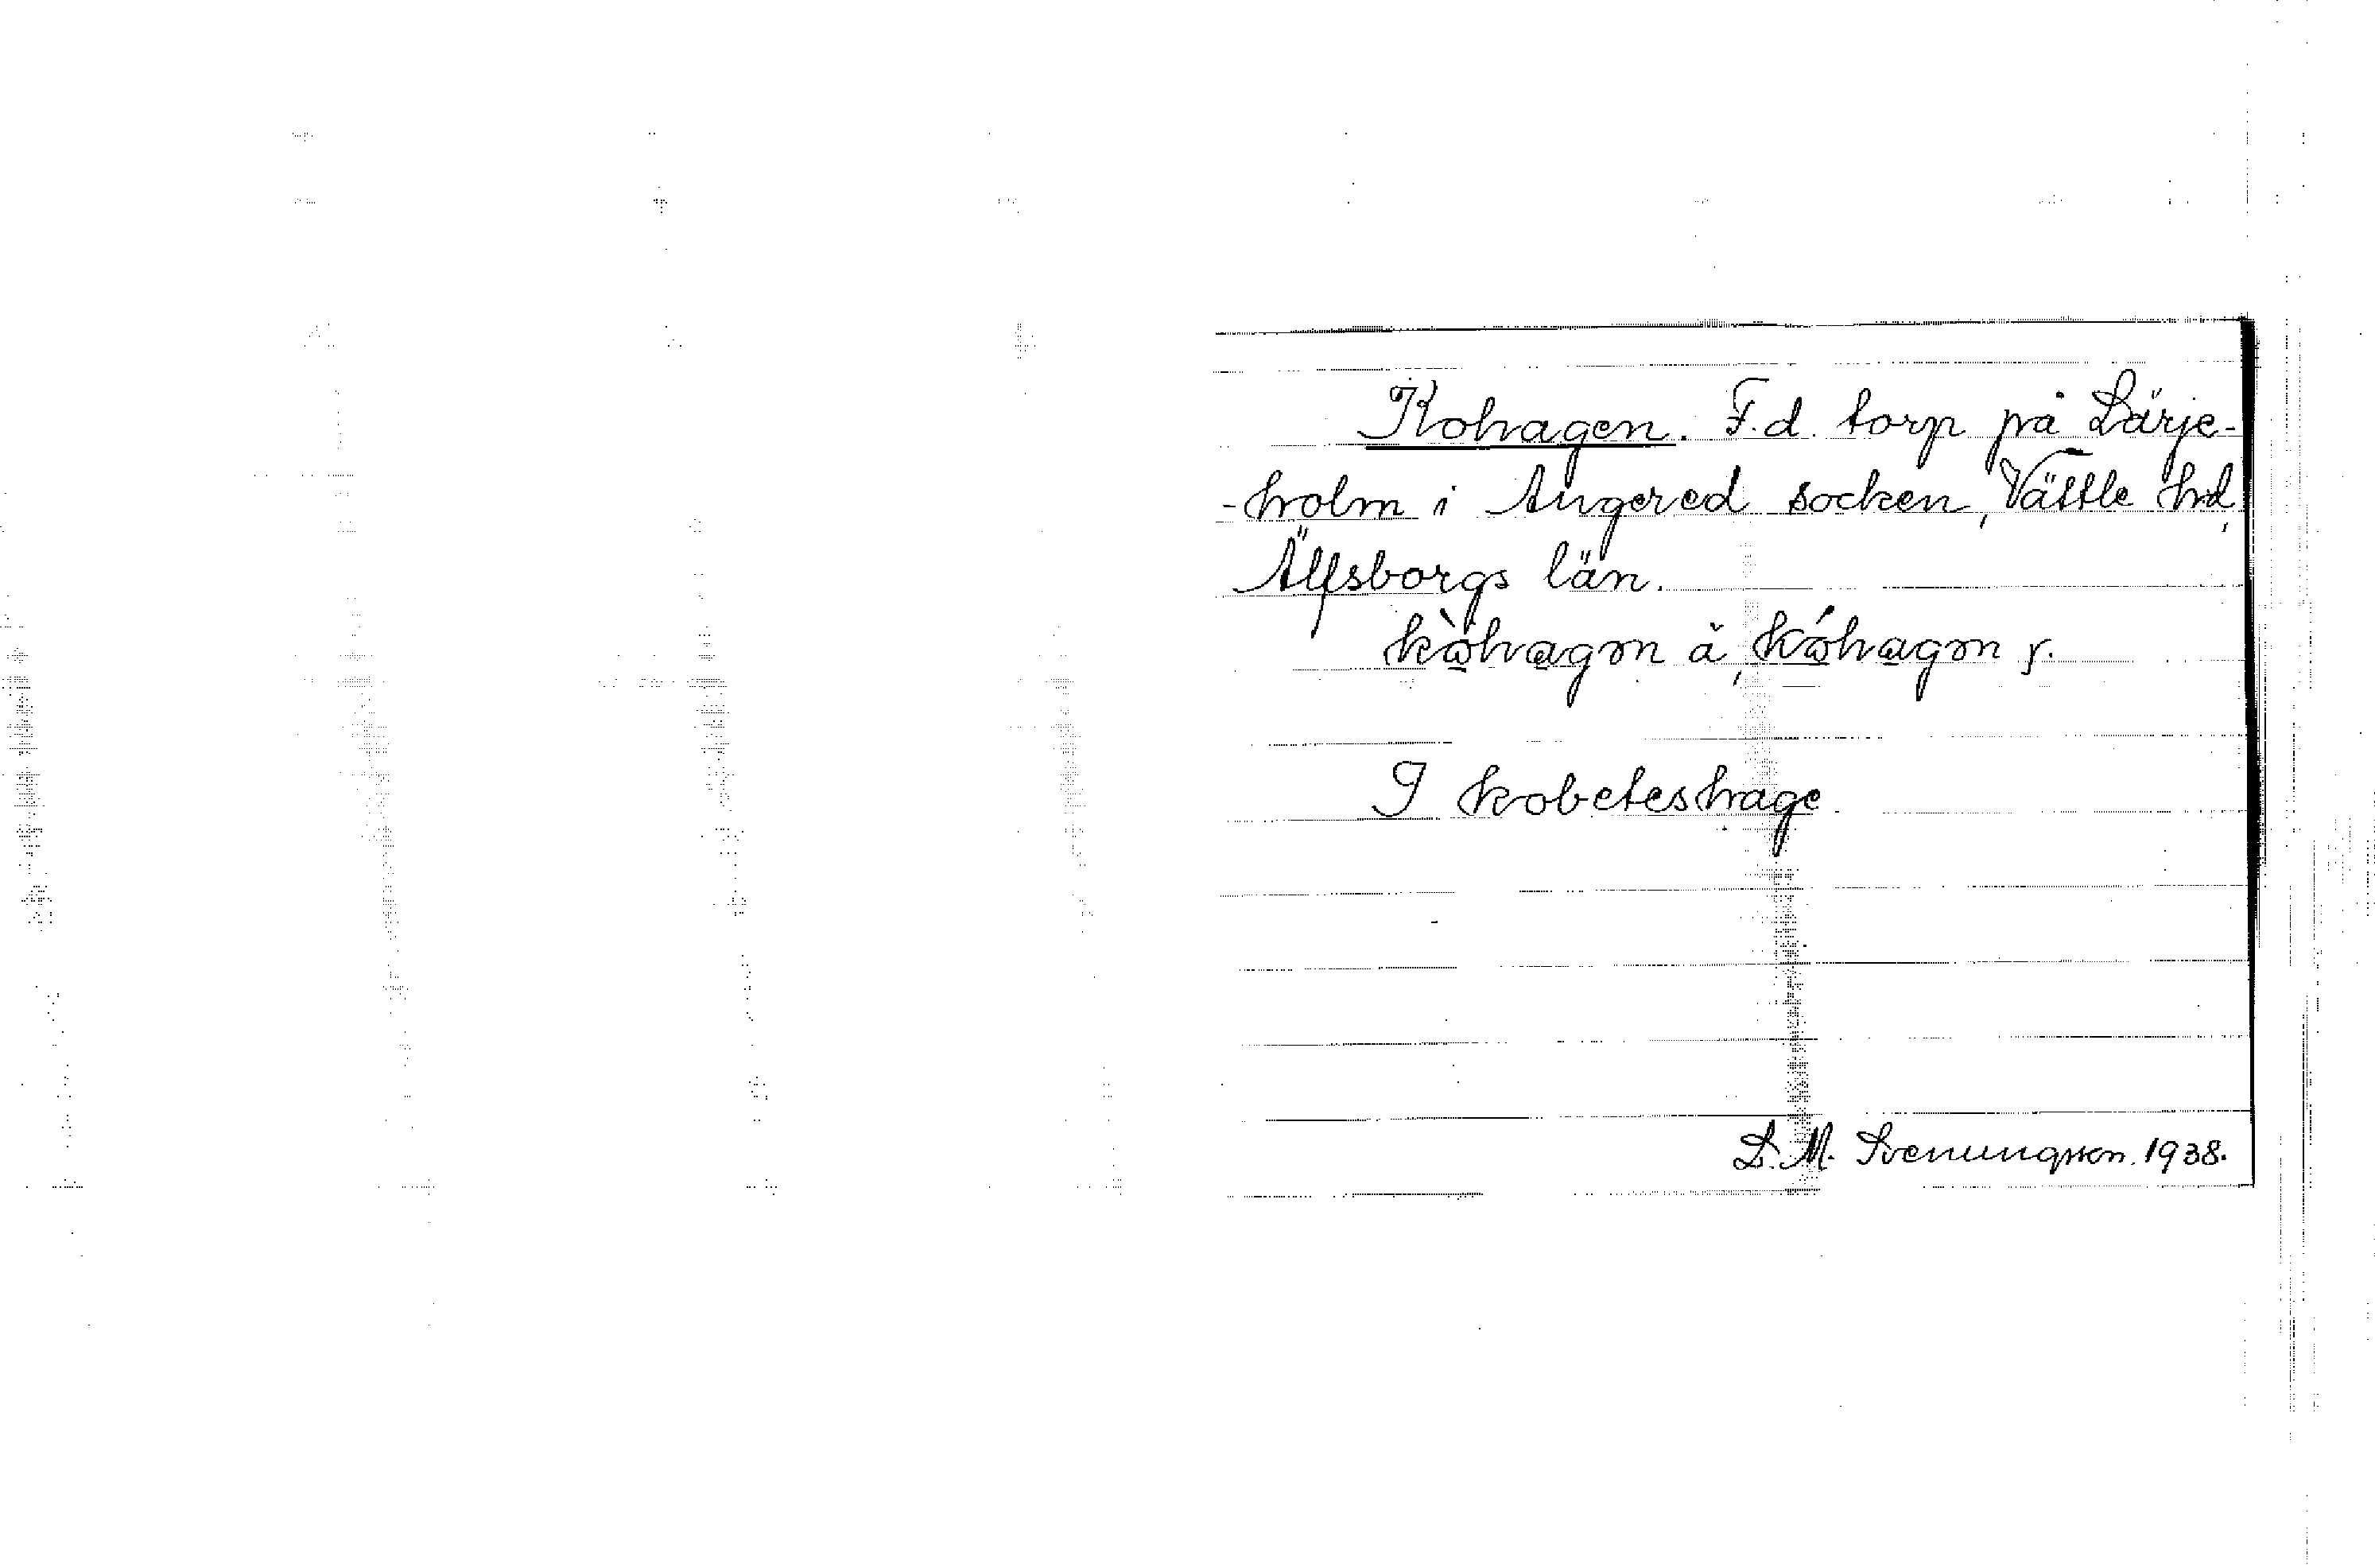 Kohagen. F.d. torp på Lärje-
-holm i Angered socken, Vättle hd,
Älfsborgs län.
kòhagon ä, kóhagon y.
I kobeteshage
D. M. Svenungsson. 1938.